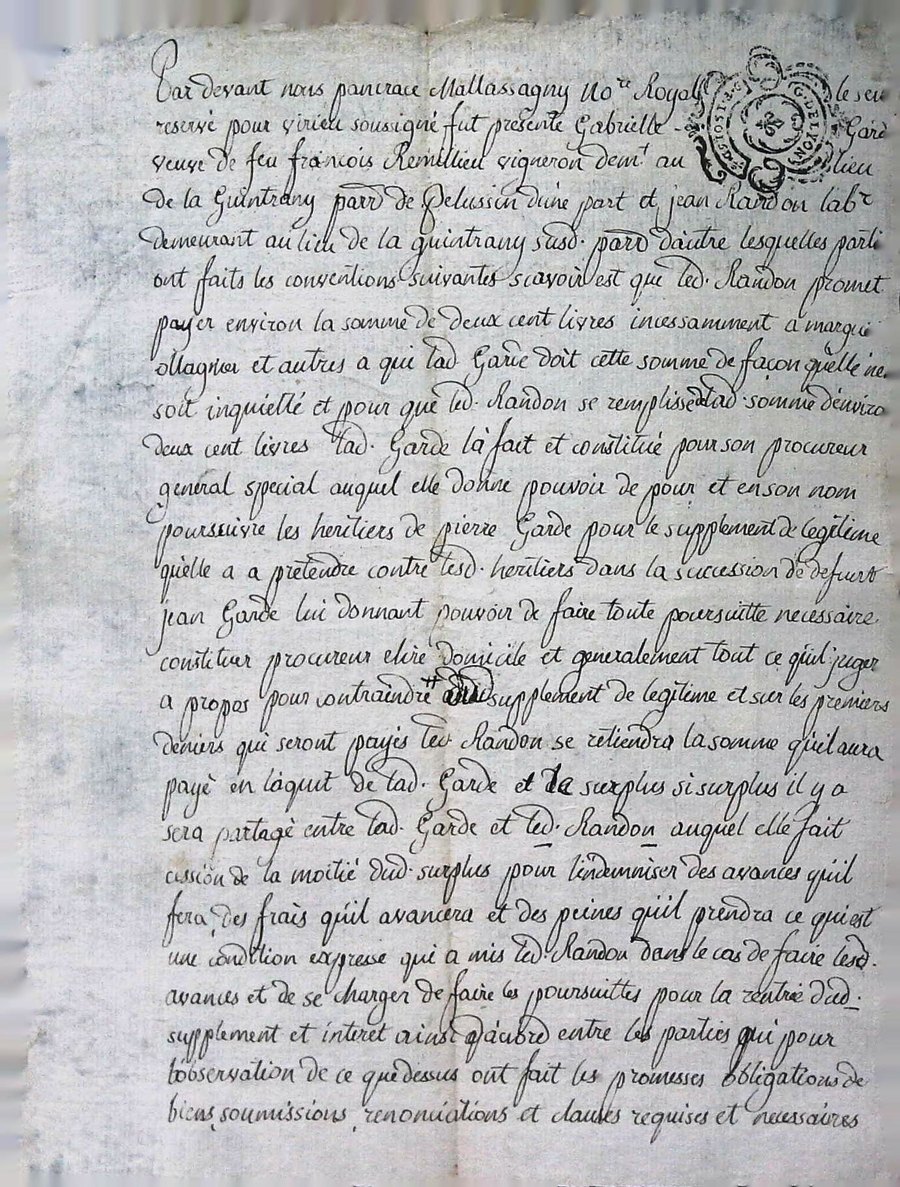 Par devant nous pancrace Mallassagny No.re Royal le seu
reservé pour virieu sousigné fut presente Gabrielle - Gard
veuve de feu francois Remillieu vigneron demt au lieu
de la Guintrany parr de Pelussin d'une part et jean Randon labr
demeurant au lieu de la guintrany susd. parr d'autre lesquelles parti
ont faits les conventions suivantes scavoir est que led. Randon promet
payer environ la somme de deux cent livres incessamment a margui
ollagnier et autres a qui lad Garde doit cette somme de façon qu'elle ne
soit inquietté et pour que led. Randon se remplisse de lad. somme d'enviro
deux cent livres lad. Garde l'a fait et constitué pour son procureur
general special auquel elle donne pouvoir de pour et en son nom
poursuivre les heritiers de pierre Garde pour le supplement de legitime
qu'elle a a pretendre contre lesd. heritiers dans la succession de defunt
jean Garde lui donnant pouvoir de faire toute poursuitte necessaire
constituer procureur elire domicile et generalement tout ce qu'il juger
a propos pour contraindre # supplement de legitime et sur les premiers
deniers qui seront payés led Randon se retiendra la somme qu'il aura
payé en l'aquit de lad. Garde et le surplus si surplus il y a
sera partagé entre lad. Garde et led. Randon auquel elle fait
cession de la moitié dud. surplus pour l'indemniser des avances qu'il
fera, des frais qu'il avancera et des peines qu'il prendra ce qui est
une condition expresse qui a mis led. Randon dans le cas de faire lesd.
avances et de se charger de faire les poursuittes pour la rentrée dud.
supplement et interet ainsi d'acord entre les parties qui pour
l'observation de ce que dessus ont fait les promesses obligations de
biens, soumissions, renonciations et clauses requises et necessaires
G. DE LYON